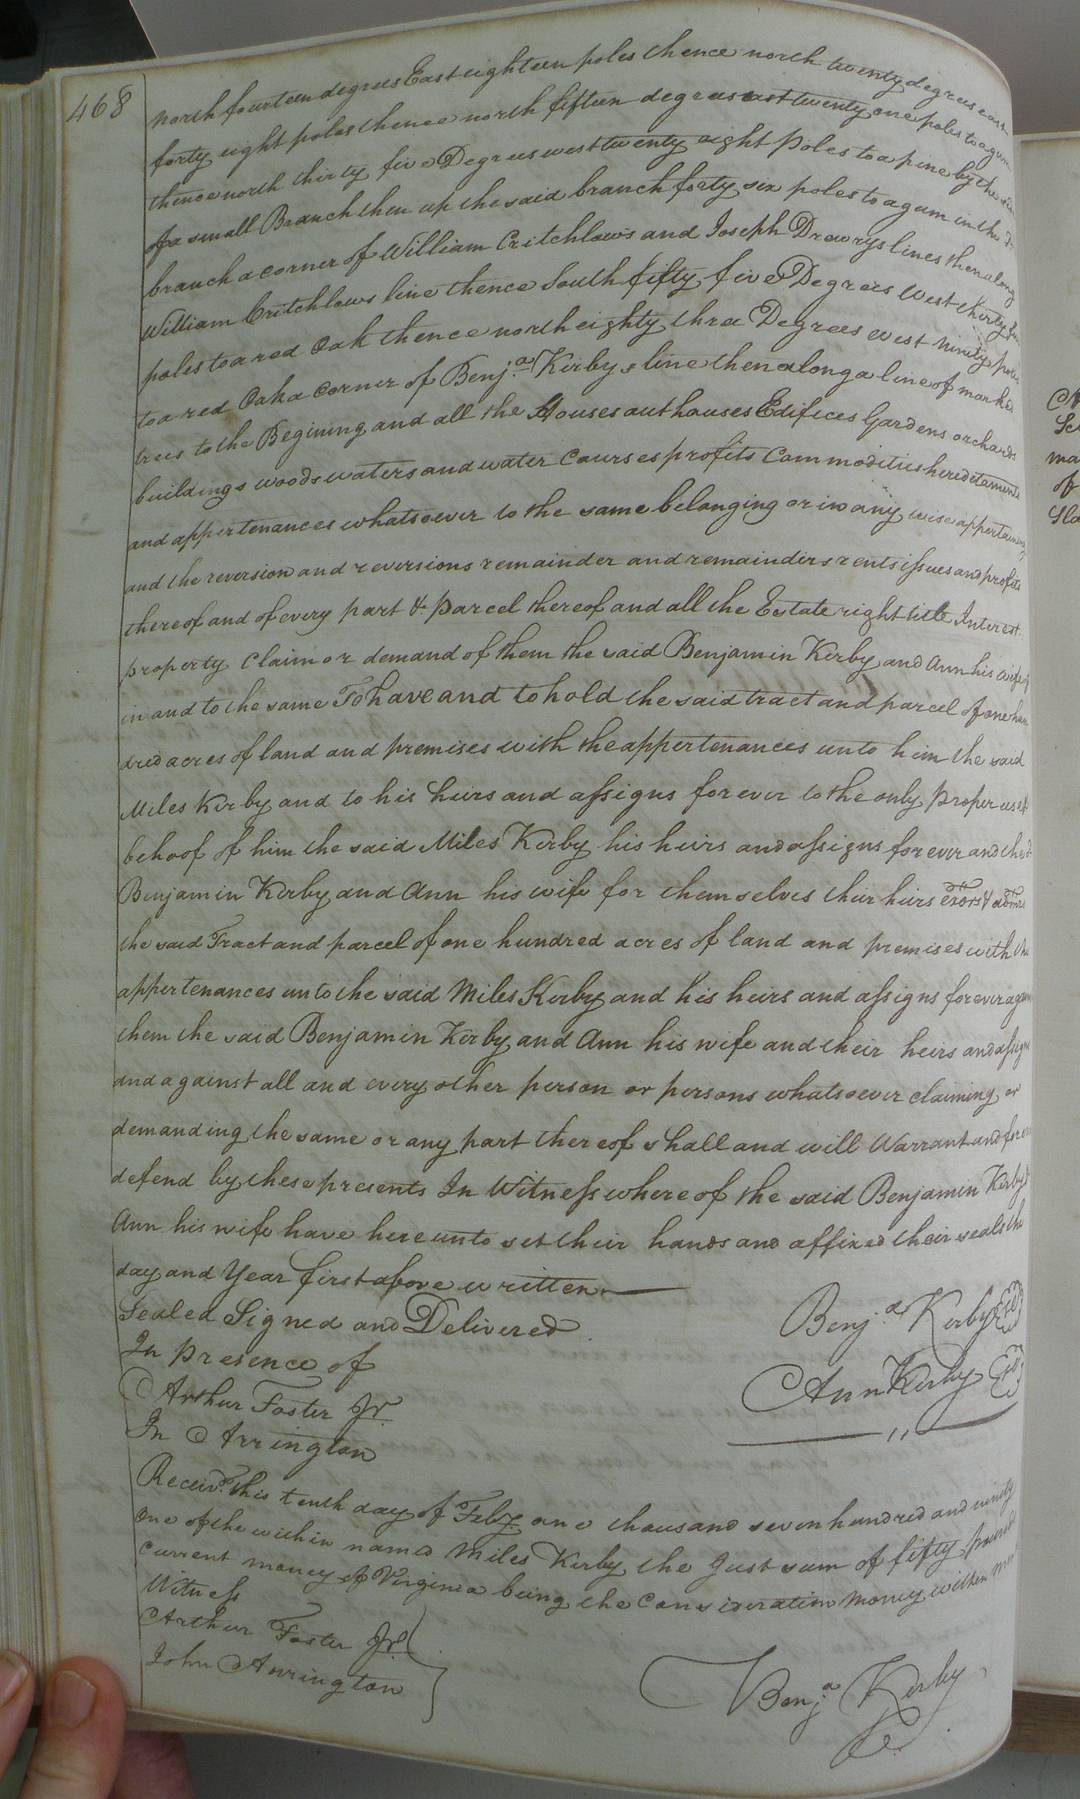 468
north fourteen degrees East eighteen poles thence north twenty degrees east
forty eight poles thence north fifteen degrees east twenty one poles to a gum
thence north thirty five Degrees west twenty eight Poles to a pine by the side
of a small Branch then up the said branch forty six poles to a gum in the
branch a corner of William Critchlows and Joseph Drewrys lines then along
William Critchlows line thence South fifty five Degrees West thirty
poles to a red Oak thence north eighty three Degrees west ninety poles
to a red Oak a corner of Benja Kirbys line then along a line of marked
trees to the Begining and all the Houses outhouses Edifices Gardens orchards
buildings woods waters and water Courses profits Commodities hereditaments
and appertenances whatsoever to the same belonging or in any wise appertaining
and the reversion and reversions remainder and remainders rents issues and profits
thereof and of every part & parcel thereof and all the Estate right title Interest
property Claim or demand of them the said Benjamin Kirby and Ann his wife of
in and to the same To have and to hold the said tract and parcel of one hun
dred acres of land and premises with the appertenances unto him the said
Miles Kirby and to his heirs and assigns forever to the only proper use &
behoof of him the said Miles Kirby his heirs and assigns for ever and the sd
Benjamin Kirby and Ann his wife for themselves their heirs exors & admrs
the said Tract and parcel of one hundred acres of land and premises with the
appertenances unto the said Miles Kirby and his heirs and assigns forever again
them the said Benjamin Kirby and Ann his wife and their heirs and assigns
and against all and every other person or persons whatsoever claiming or
demanding the same or any part thereof shall and will Warrant and forever
defend by these presents In Witness whereof the said Benjamin Kirby &
Ann his wife have hereunto set their hands and affixed their seals the
day and Year first above written
Sealed Signed and Delivered
In presence of
Benja Kirby
Arthur Foster Jr.
Ann Kirby
Jn Arrington
Receivd. this tenth day of Feby one thousand seven hundred and ninety
one of the within named Miles Kirby the Just sum of fifty pounds
current money of Virginia being the Consideration money within
Witness
Arthur Foster Jr.
John Arrington
Benja Kirby